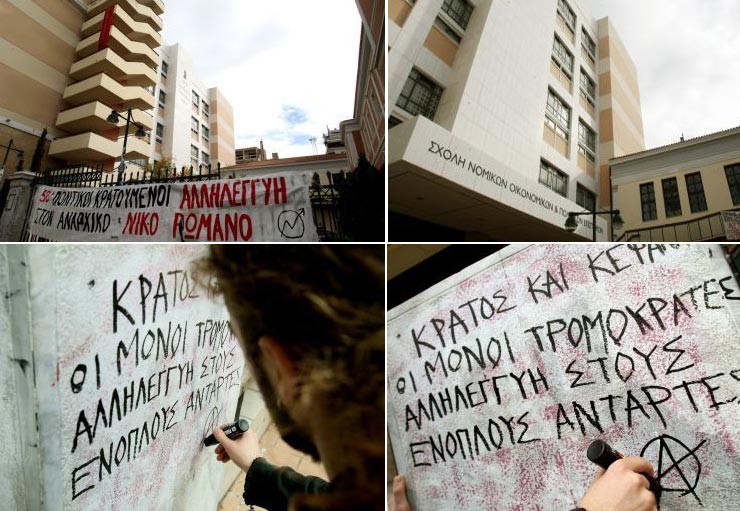 52 ΠΟΛΙΤΙΚΟΙ ΚΡΑΤΟΥΜΕΝΟΙ ΑΛΛΗΛΕΓΓΥΗ
ΣΤΟΝ ΑΝΑΡΧΙΚΟ ΝΙΚΟ ΡΩΜΑΝΟ
ΣΧΟΛΗ ΝΟΜΙΚΩΝ ΟΙΚΟΝΟΜΙΚΩΝ &
ΚΡΑΤΟΣ
ΟΙ ΜΟΝΟΙ ΤΡΟΜΟ
ΑΛΛΗΛΕΓΓΥΗ ΣΤΟΥΣ
ΕΝΟΠΛΟΥΣ ΑΝΤΑΡΤΕ
ΚΡΑΤΟΣ ΚΑΙ ΚΕΦΑ
ΟΙ ΜΟΝΟΙ ΤΡΟΜΟΚΡΑΤΕΣ
ΑΛΛΗΛΕΓΓΥΗ ΣΤΟΥΣ
ΕΝΟΠΛΟΥΣ ΑΝΤΑΡΤΕΣ